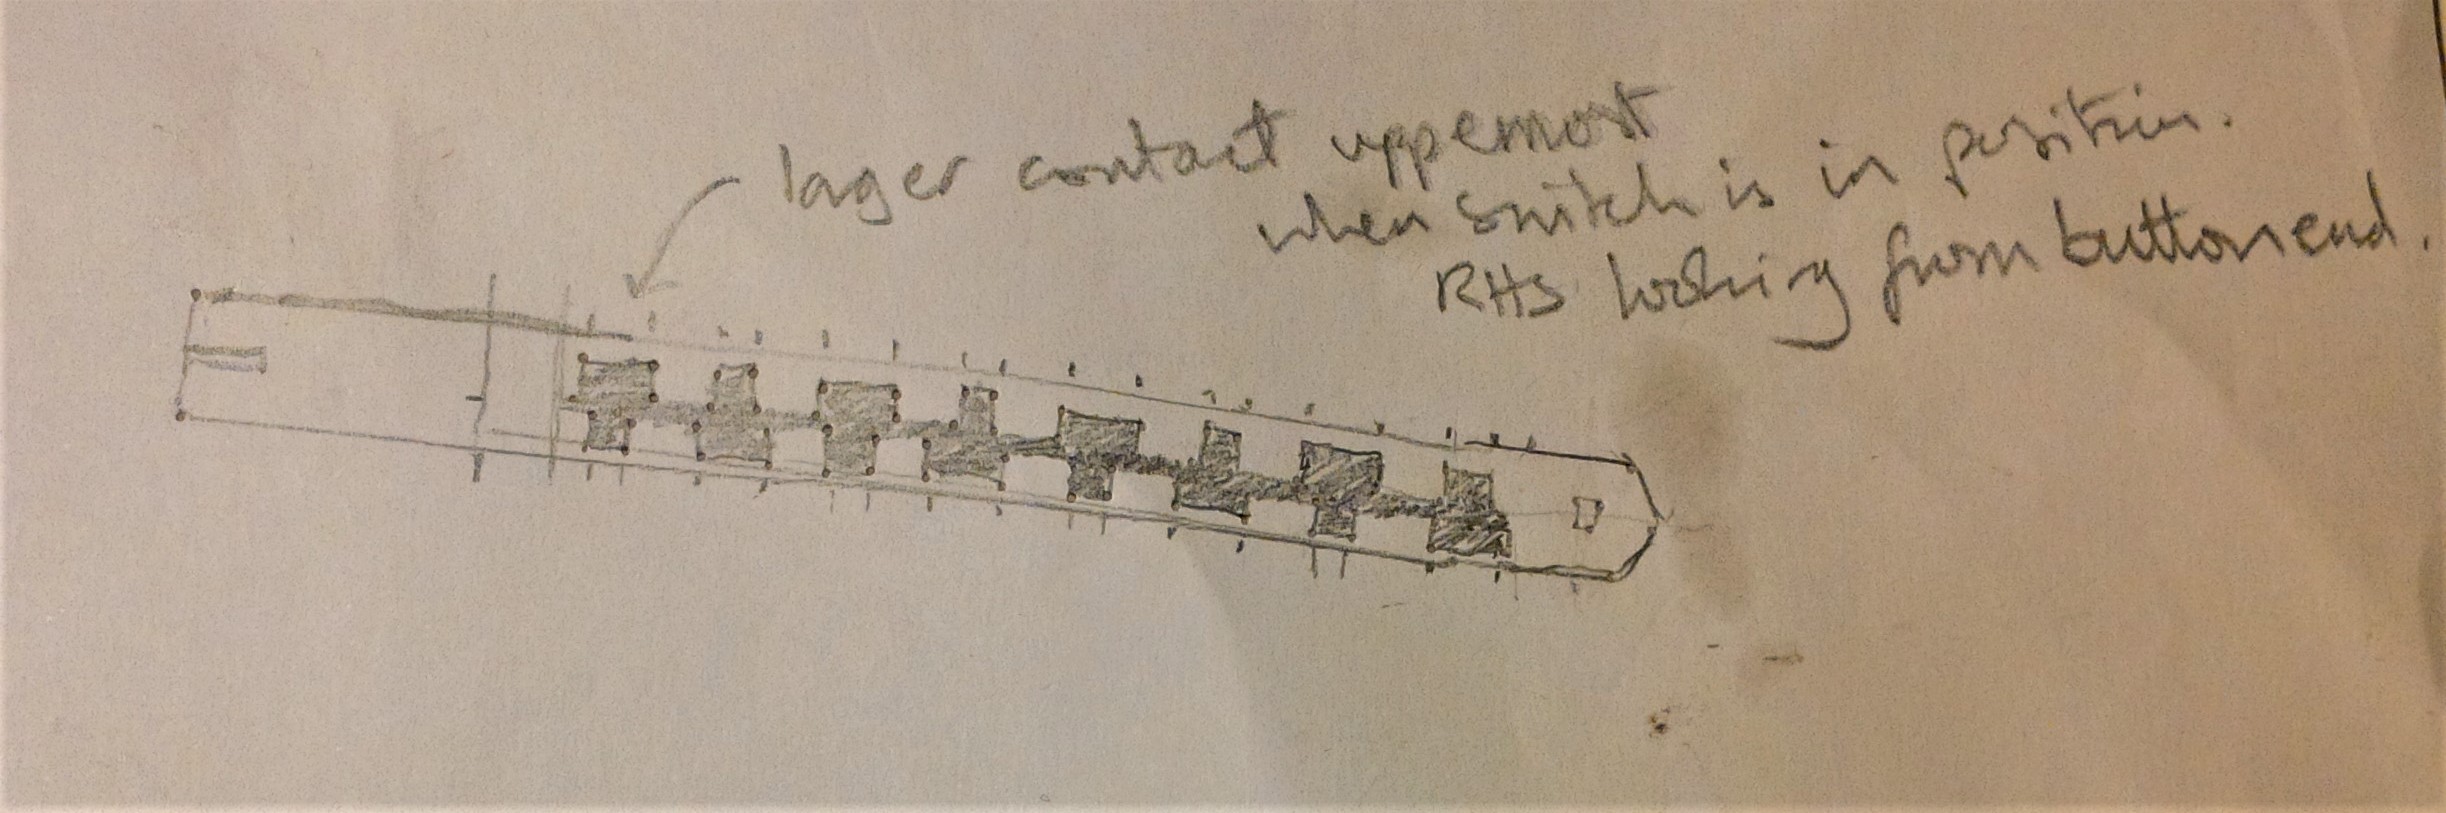 lager contact uppermost
when switch is in position.
RHS looking from button end.